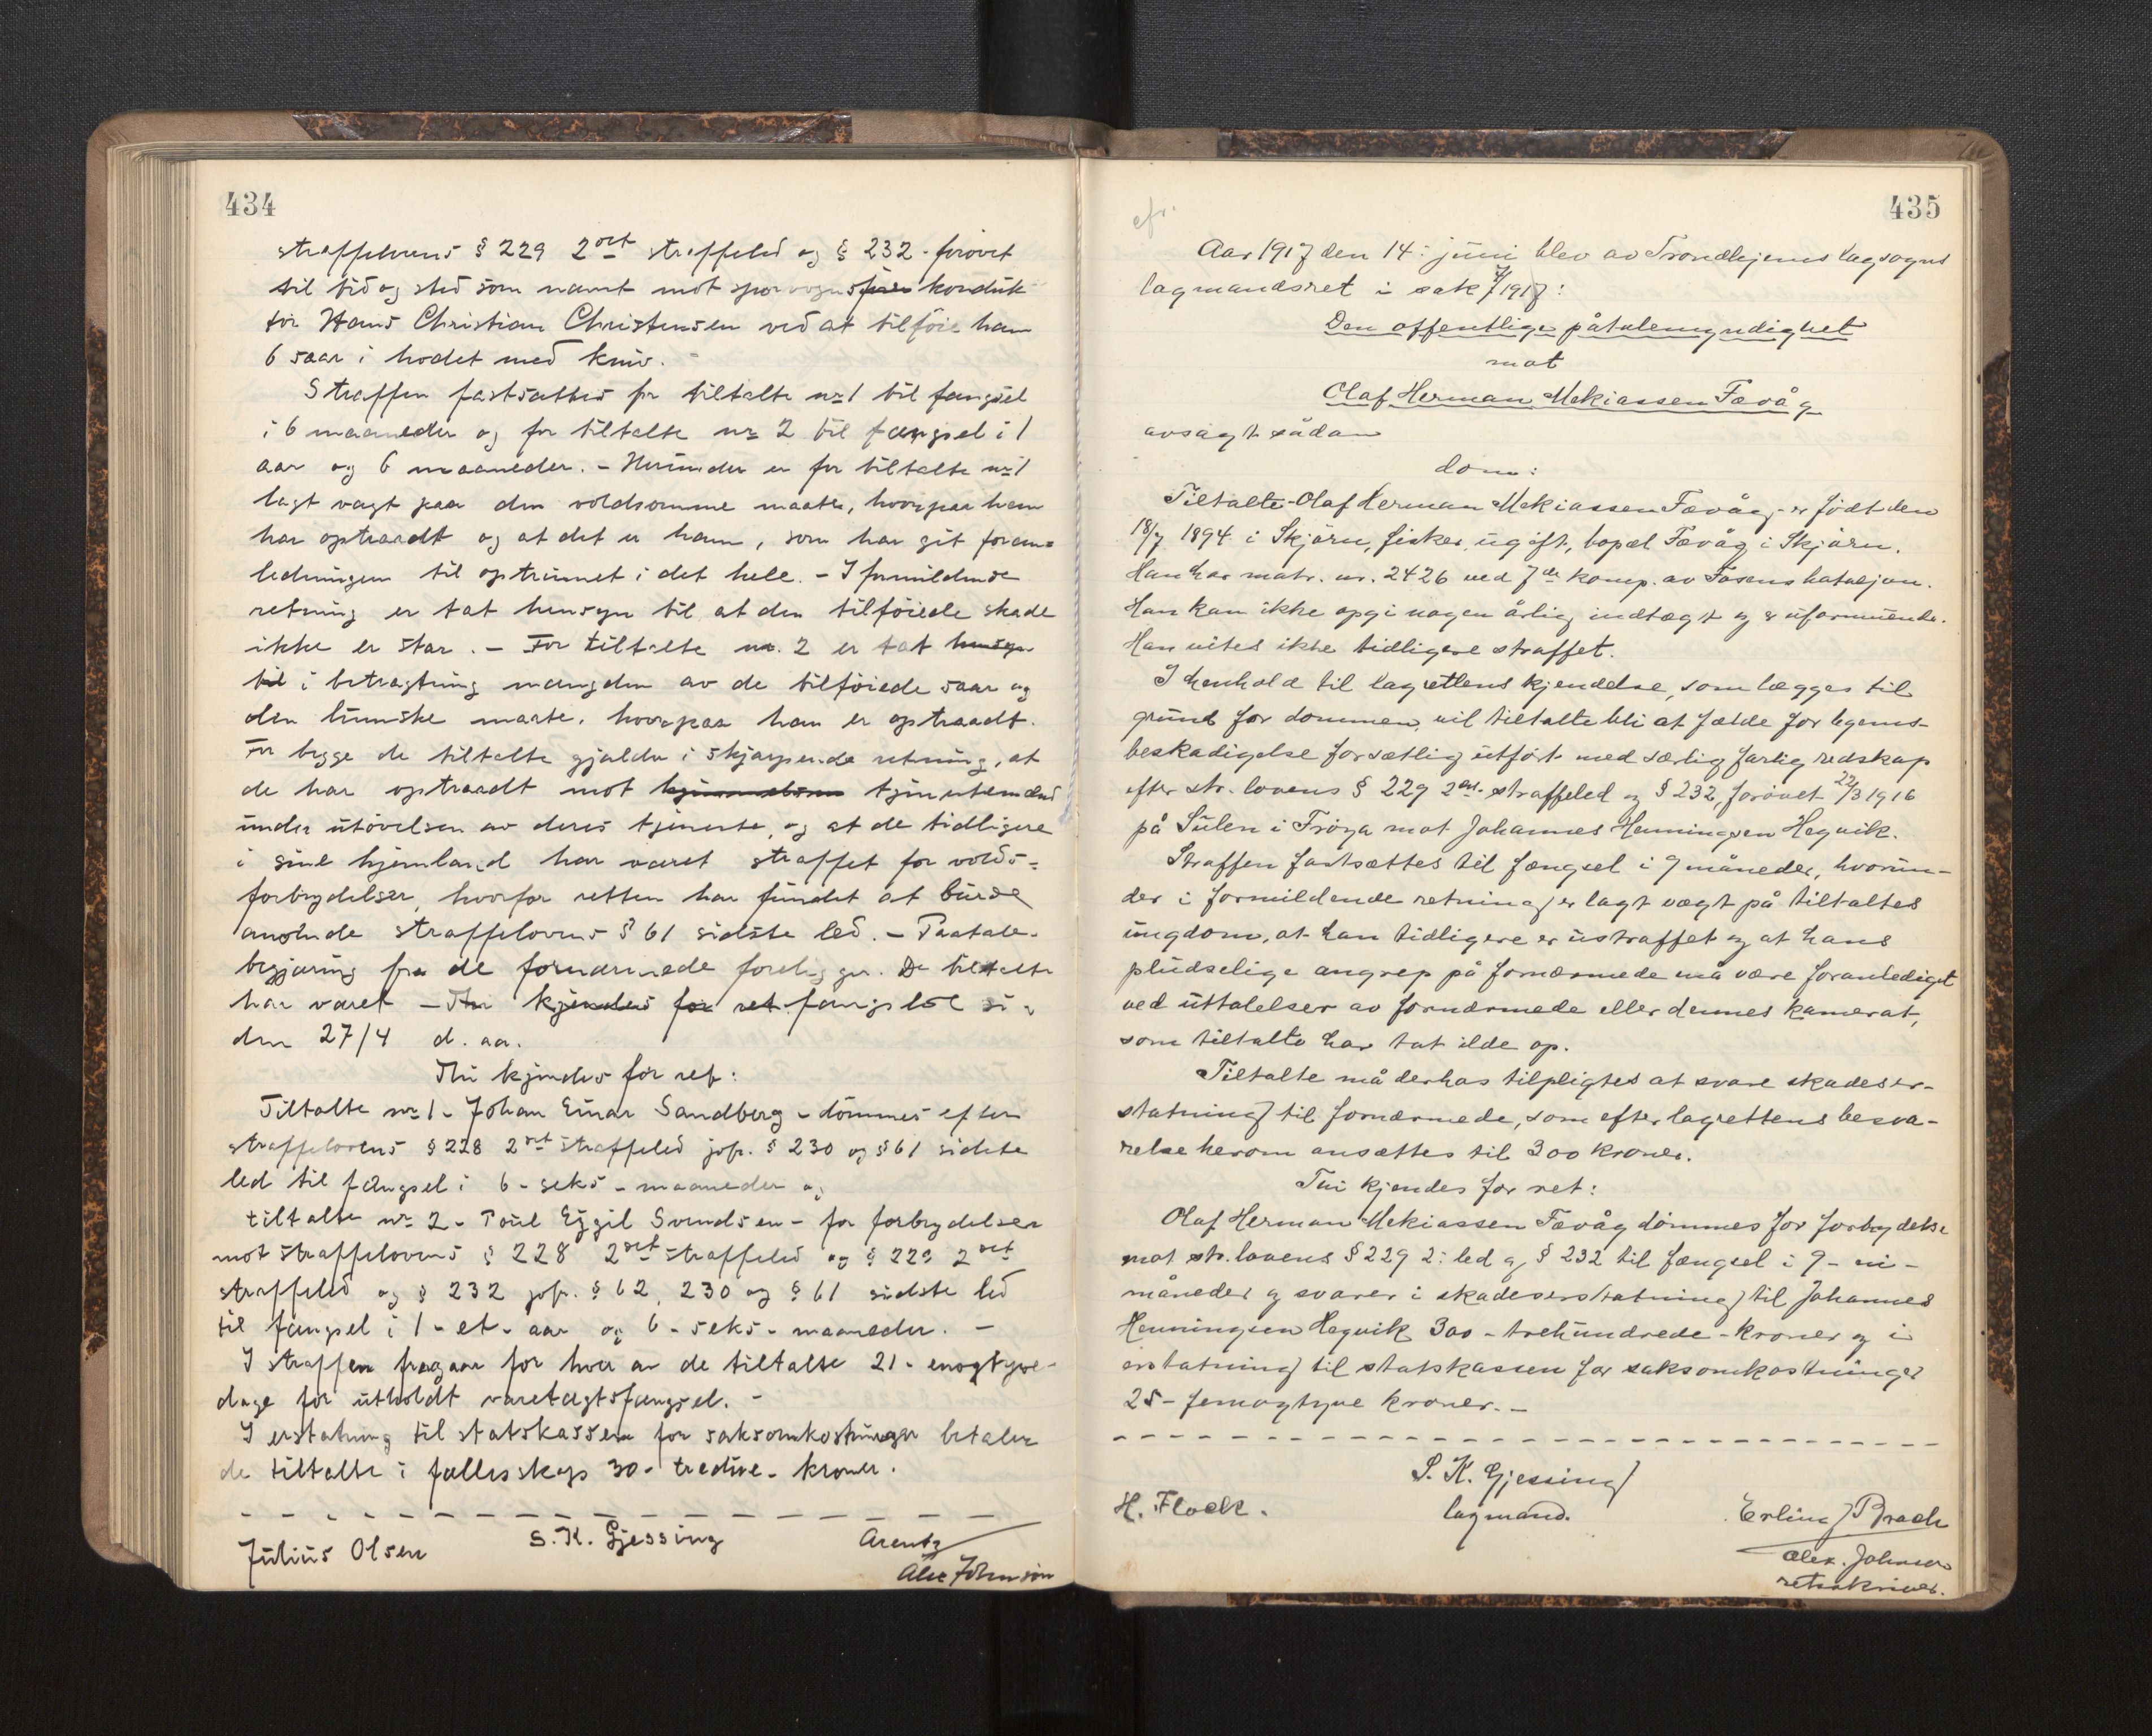 434
straffelovens § 229 2det straffeled og § 232 - forövet
til tid og sted som nævnt mot sporvognsfører konduk-
tør Hans Christian Christensen ved at tilföie ham
6 saar i hodet med kniv.
Straffen fastsættes for tiltalte nr 1 til fængsel
i 6 maaneder og for tiltalte nr 2 til fængsel i 1
aar og 6 maaneder. - Herunder er for tiltalte nr 1
lagt vægt paa den voldsomme maate, hvorpaa han
har optraadt og at det er ham, som har git foran=
ledningen til optrinnet i det hele. - I formildende
retning er tat hensyn til at den tilföiede skade
ikke er stor. - For tiltalte nr. 2 er tat hensyn
til i betragtning mængden av de tilföiede saar og
den lumske maate, hvorpaa han er optraadt.
For begge de tiltalte gjælder i skjærpende retning, at
de har optraadt mot tjenestemænd
under utövelsen av deres tjeneste, og at de tidligere
i sine hjemland har været straffet for volds=
forbrydelser, hvorfor retten har fundet at burde
anvende straffelovens § 61 sidste led. - Paatale-
begjæring fra de fornærmede foreligger. De tiltalte
har været - Thi kjendes for ret fængslet si-
den 27/4 d. aa.
Thi kjendes for ret:
Tiltalte nr 1 - Johan Einar Sandberg - dömmes efter
straffelovens § 228 2det straffeled jvfr. § 230 og § 61 sidste
led til fængsel i 6 - seks - maaneder og
tiltalte nr 2 - Poul Eggil Svendsen - for forbrydelser
mot straffelovens § 228 2det straffeled og § 229 2det
straffeled og § 232 jvfr. § 62, 230 og § 61 sidste led
til fængsel i 1 - et - aar og 6 - seks - maaneder. -
I straffen fragaar for hver av de tiltalte 21 - enogtyve -
dage for utholdt varetægtsfængsel. -
I erstatning til statskassen for saksomkostninger betaler
de tiltalte i fællesskap 30 - tredive - kroner.
Julius Olsen S. K. Gjessing Arentz
Alex Johnson
435
cfr.
Aar 1917 den 14: juni blev av Trondhjems lagsogns
lagmandsret i sak 7/1917:
Den offentlige påtalemyndighet
mot
Olaf Herman Mekiassen Fævåg
avsagt sådan
dom:
Tiltalte - Olaf Herman Mekiassen Fævåg - er født den
18/7 1894 i Skjørn, fisker, ugift, bopæl Fævåg i Skjørn.
Han har matr. nr. 2426 ved 7de komp. av Fosens bataljon.
Han kan ikke opgi nogen årlig indtægt og er uformuende.
Han vites ikke tidligere straffet.
I henhold til lagrettens kjendelse, som lægges til
grund for dommen, vil tiltalte bli at fælde for legems-
beskadigelse forsætlig utført med særlig farlig redskap
efter str. lovens § 229 2et straffeled og § 232, forøvet 22/3 1916
på Sulen i Frøya mot Johannes Henningsen Hegvik.
Straffen fastsættes til fængsel i 9 måneder, hvorun-
der i formildende retning er lagt vægt på tiltaltes
ungdom, at han tidligere er ustraffet og at hans
pludselige angrep på fornærmede må være foranlediget
ved uttalelser av fornærmede eller dennes kamerat,
som tiltalte har tat ilde op.
Tiltalte må derhos tilpligtes at svare skadeser-
statning til fornærmede, som efter lagrettens besva-
relse herom ansættes til 300 kroner.
Thi kjendes for ret:
Olaf Herman Mekiassen Fævåg dømmes for forbrydelse
mot str. lovens § 229 2: led og § 232 til fængsel i 9 - ni -
måneder og svarer i skadeserstatning til Johannes
Henningsen Hegvik 300 - trehundrede - kroner og i
erstatning til statskassen for saksomkostninger
25 - femogtyve kroner. -
S. K. Gjessing
H. Flock. lagmand. Erling Brack
Alex. Johnson
retsskriver.